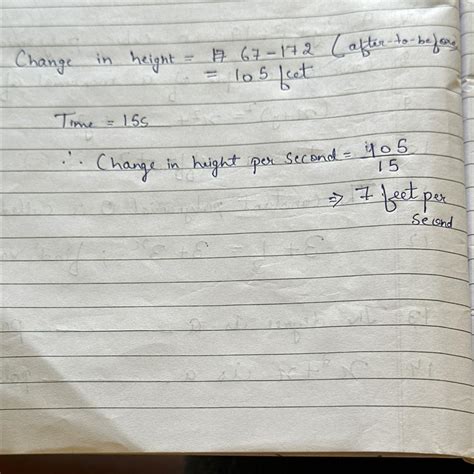 Change in height = 67-172 (after-to-before)
= 105 feet
Time = 15s
∴ Change in height per second = 105
15
⇒ 7 feet per
second